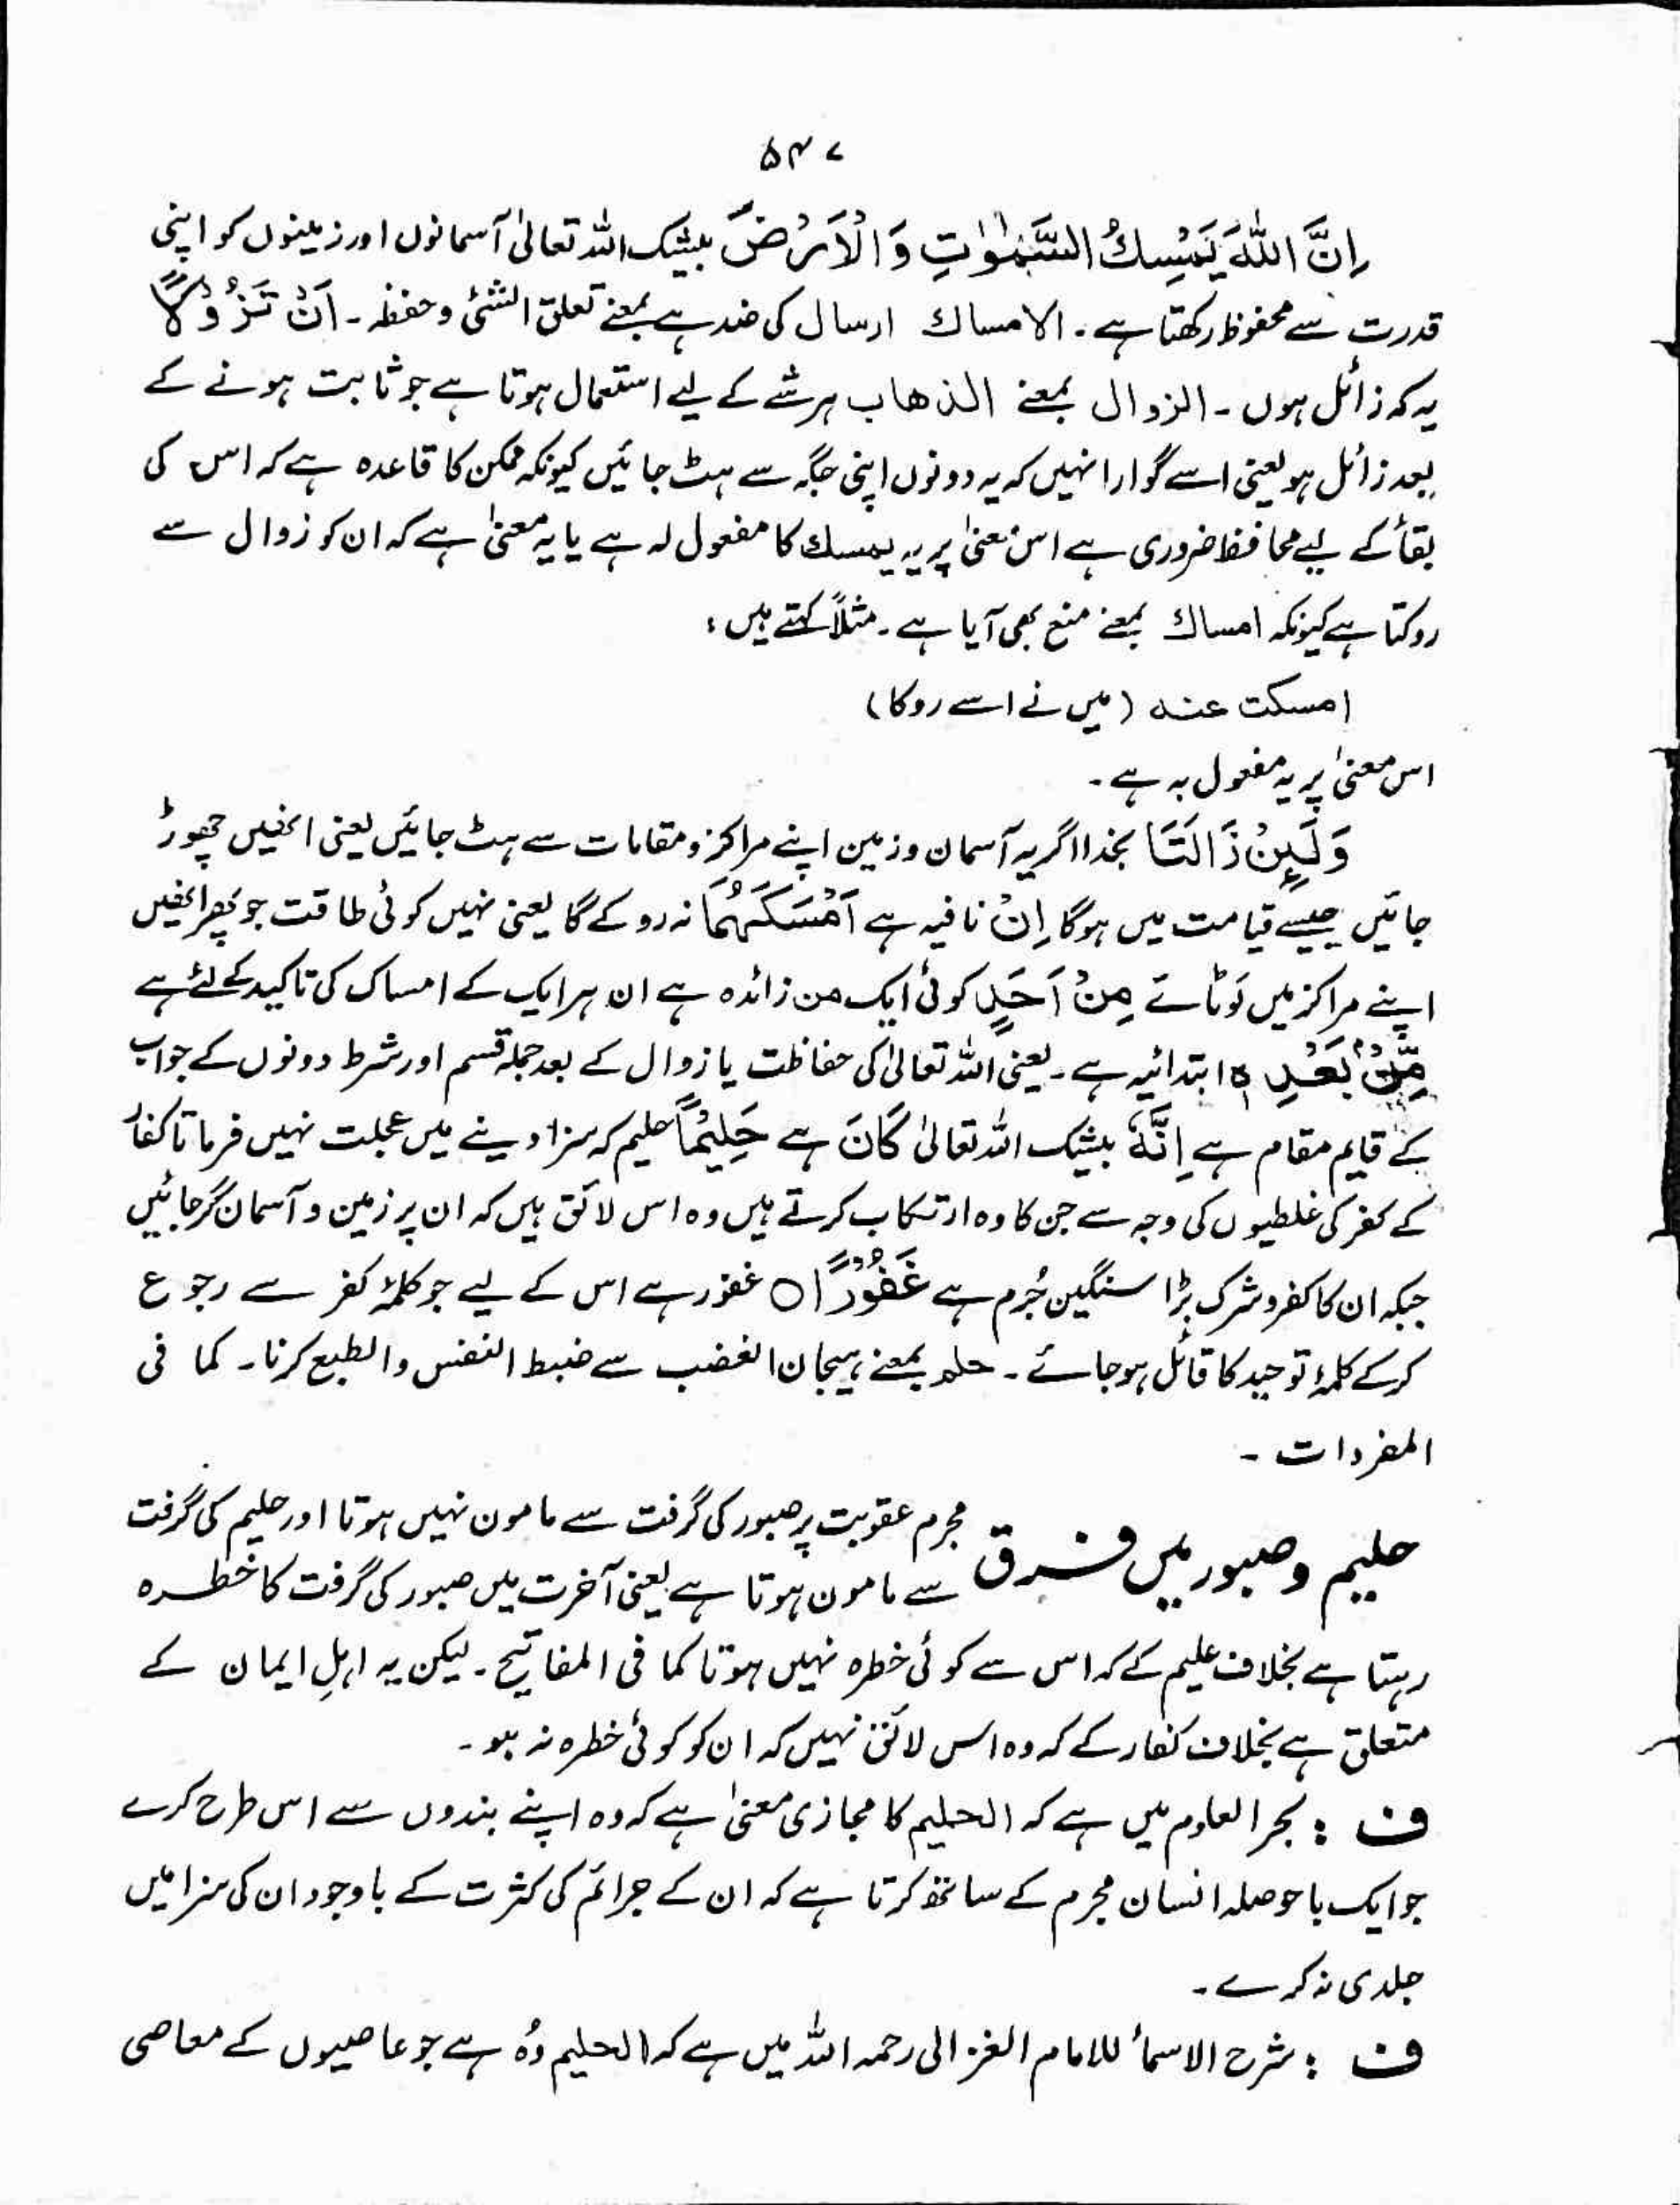 ۵۴۷
اِنَّ اللّٰهَ يُمْسِكُ السَّمٰوٰتِ وَ الْاَرْضَ بیشک اللہ تعالیٰ آسمانوں اور زمینوں کو اپنی
قدرت سے محفوظ رکھتا ہے۔ الامساك ارسال کی ضد ہے بمعنے تعلق الشئی و حفظہ۔ اَنْ تَزُوْلَا
یہ کہ زائل ہوں۔ الزوال بمعنے الذھاب ہر شے کے لیے استعمال ہوتا ہے جو ثابت ہونے کے
بعد زائل ہو یعنی اسے گوارا نہیں کہ یہ دونوں اپنی جگہ سے ہٹ جائیں کیونکہ ممکن کا قاعدہ ہے کہ اس کی
بقأ کے لیے محافظ ضروری ہے اس معنیٰ پر یہ یمسك کا مفعول لہ ہے یا یہ معنیٰ ہے کہ ان کو زوال سے
روکتا ہے کیونکہ امساك بمعنے منع بھی آیا ہے۔ مثلاً کہتے ہیں :
امسكت عنه (میں نے اسے روکا)
اس معنیٰ پر یہ مفعول بہ ہے۔
وَ لَىِٕنْ زَالَتَا بخدا اگر یہ آسمان و زمین اپنے مراکز و مقامات سے ہٹ جائیں یعنی انھیں چھوڑ
جائیں جیسے قیامت میں ہوگا اِنْ نافیہ ہے اَمْسَكَهُمَا نہ روکے گا یعنی نہیں کوئی طاقت جو پھر انھیں
اپنے مراکز میں لوٹائے مِنْ اَحَدٍ کوئی ایک من زائدہ ہے ان ہر ایک کے امساک کی تاکید کے لئے ہے
مِّنْۢ بَعْدِهٖ ابتدائیہ ہے۔ یعنی اللہ تعالیٰ کی حفاظت یا زوال کے بعد جملہ قسم اور شرط دونوں کے جواب
کے قایم مقام ہے اِنَّهٗ بیشک اللہ تعالیٰ كَانَ ہے حَلِيْمًا حلیم کہ سزا دینے میں عجلت نہیں فرماتا کفار
کے کفر کی غلطیوں کی وجہ سے جن کا وہ ارتکاب کرتے ہیں وہ اس لائق ہیں کہ ان پر زمین و آسمان گر جائیں
جبکہ ان کا کفر و شرک بڑا سنگین جُرم ہے غَفُوْرًا ○ غفور ہے اس کے لیے جو کلمۂ کفر سے رجوع
کرکے کلمۂ توحید کا قائل ہو جائے۔ حلم بمعنے ہیجان الغضب سے ضبط النفس والطبع کرنا۔ کما فی
المفردات۔
حلیم و صبور میں فرق مجرم عقوبت پر صبور کی گرفت سے مامون نہیں ہوتا اور حلیم کی گرفت
سے مامون ہوتا ہے یعنی آخرت میں صبور کی گرفت کا خطرہ
رہتا ہے بخلاف علیم کے کہ اس سے کوئی خطرہ نہیں ہوتا کما فی المفاتیح۔ لیکن یہ اہلِ ایمان کے
متعلق ہے بخلاف کفار کے کہ وہ اس لائق نہیں کہ ان کو کوئی خطرہ نہ ہو۔
ف : بحر العلوم میں ہے کہ الحلیم کا مجازی معنیٰ ہے کہ وہ اپنے بندوں سے اس طرح کرے
جو ایک باحوصلہ انسان مجرم کے ساتھ کرتا ہے کہ ان کے جرائم کی کثرت کے باوجود ان کی سزا میں
جلدی نہ کرے۔
ف : شرح الاسمأ للامام الغزالی رحمہ اللہ میں ہے کہ الحلیم وُہ ہے جو عاصیوں کے معاصی